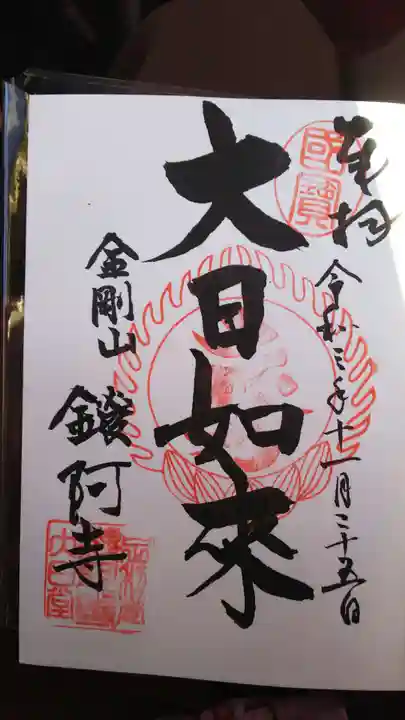 奉拝
國寶
令和三年十一月二十五日
大日如來
金剛山
鑁阿寺